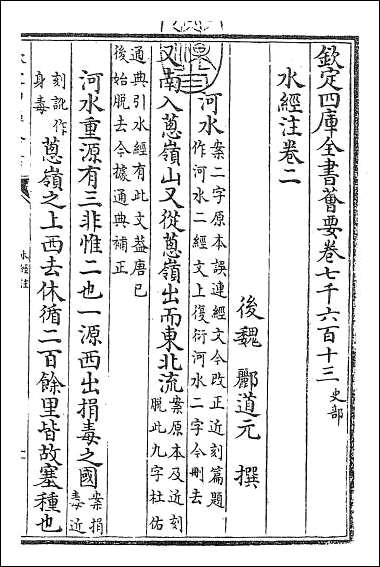 欽定四庫全書薈要卷七千六百十三 史部
水經注卷二
後魏 酈道元 撰
河水 案二字原本誤連經文今改正近刻篇題
作河水二經文上復衍河水二字今刪去
又南入蔥嶺山又從蔥嶺出而東北流 案原本及近刻
脱此九字杜佑
通典引水經有此文葢唐已
後始脱去今據通典補正
河水重源有三非惟二也一源西出捐毒之國 案捐
毒近
刻訛作
身毒
蔥嶺之上西去休循二百餘里皆故塞種也
水經注